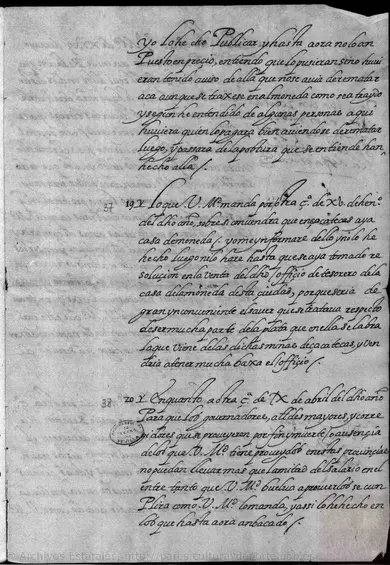 yo lo he cho Publicar, y hasta aora no lo an
Puesto en precio, entiendo que lo pusieran si no huvi
eran tenido auiso de alla que no se auia de rematar
aca aunque se traxese en almoneda como se a traydo
y segun he entendido de algunas personas aqui
huviera quien lo pagara bien auiendose de rematar
luego, y pasara de la postura que se entiende han
hecho alla /.
37 19 X Lo que V. M.d manda por otra ç.a de xv. de hen.o
del dho año, sobre si conuendra que en çacatecas aya
casa de moneda /. yo me ynformare dello y no lo he
hecho luego ni lo hare hasta que se aya tomado re
solucion en la venta del dho officio de tesorero de la
casa de la moneda desta ciudad, porque seria de
gran ynconuiniente el sauer que se trataua respecto
de ser mucha parte de la plata que en ella se labra
la que viene de las dichas minas de çacatecas, y ven
dria a tener mucha baxa el officio /.
38 20 X En quanto a otra ç.a de IX de abril del dho año
Para que los governadores, all.des mayores, y corre
gidores que se proueyeren por fin y muerte, o ausencia
de los que V. M.d tiene proueydos en estas prouincias
no puedan lleuar mas que la mitad del salario en el
entre tanto que V. M.d buelue a proueerlos se cun
Plira como V. M.d lo manda, y assi lo he hecho en
los que hasta aora an bacado /.